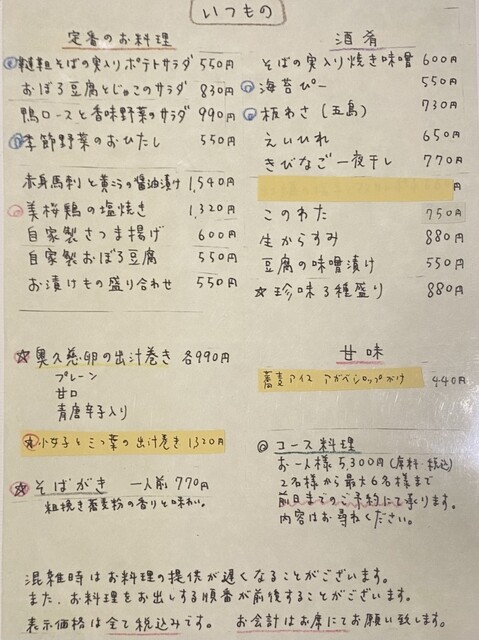 いつもの
定番のお料理
韃靼そばの実入りポテトサラダ 550円
おぼろ豆腐とじゃこのサラダ 830円
鴨ロースと香味野菜のサラダ 990円
季節野菜のおひたし 550円
赤身馬刺と黄こうの醤油漬け 1,540円
美桜鶏の塩焼き 1,320円
自家製さつま揚げ 600円
自家製おぼろ豆腐 550円
お漬けもの盛り合わせ 550円
☆奥久慈卵の出汁巻き 各990円
プレーン
甘口
青唐辛子入り
小女子と三つ葉の出汁巻き 1320円
☆そばがき 一人前 770円
粗挽き蕎麦粉の香りと味わい。
酒肴
そばの実入り焼き味噌 600円
海苔ぴー 550円
板わさ(五島) 730円
えいひれ 650円
きびなご一夜干し 770円
このわた 750円
生からすみ 880円
豆腐の味噌漬け 550円
☆珍味3種盛り 880円
甘味
蕎麦アイス アガベシロップがけ 440円
コース料理
お一人様 5,300円(席料・税込)
2名様から最大6名様まで
前日までのご予約にて承ります。
内容はお尋ねください。
混雑時はお料理の提供が遅くなることがございます。
また、お料理をお出しする順番が前後することがございます。
表示価格は全て税込みです。 お会計はお席にてお願い致します。